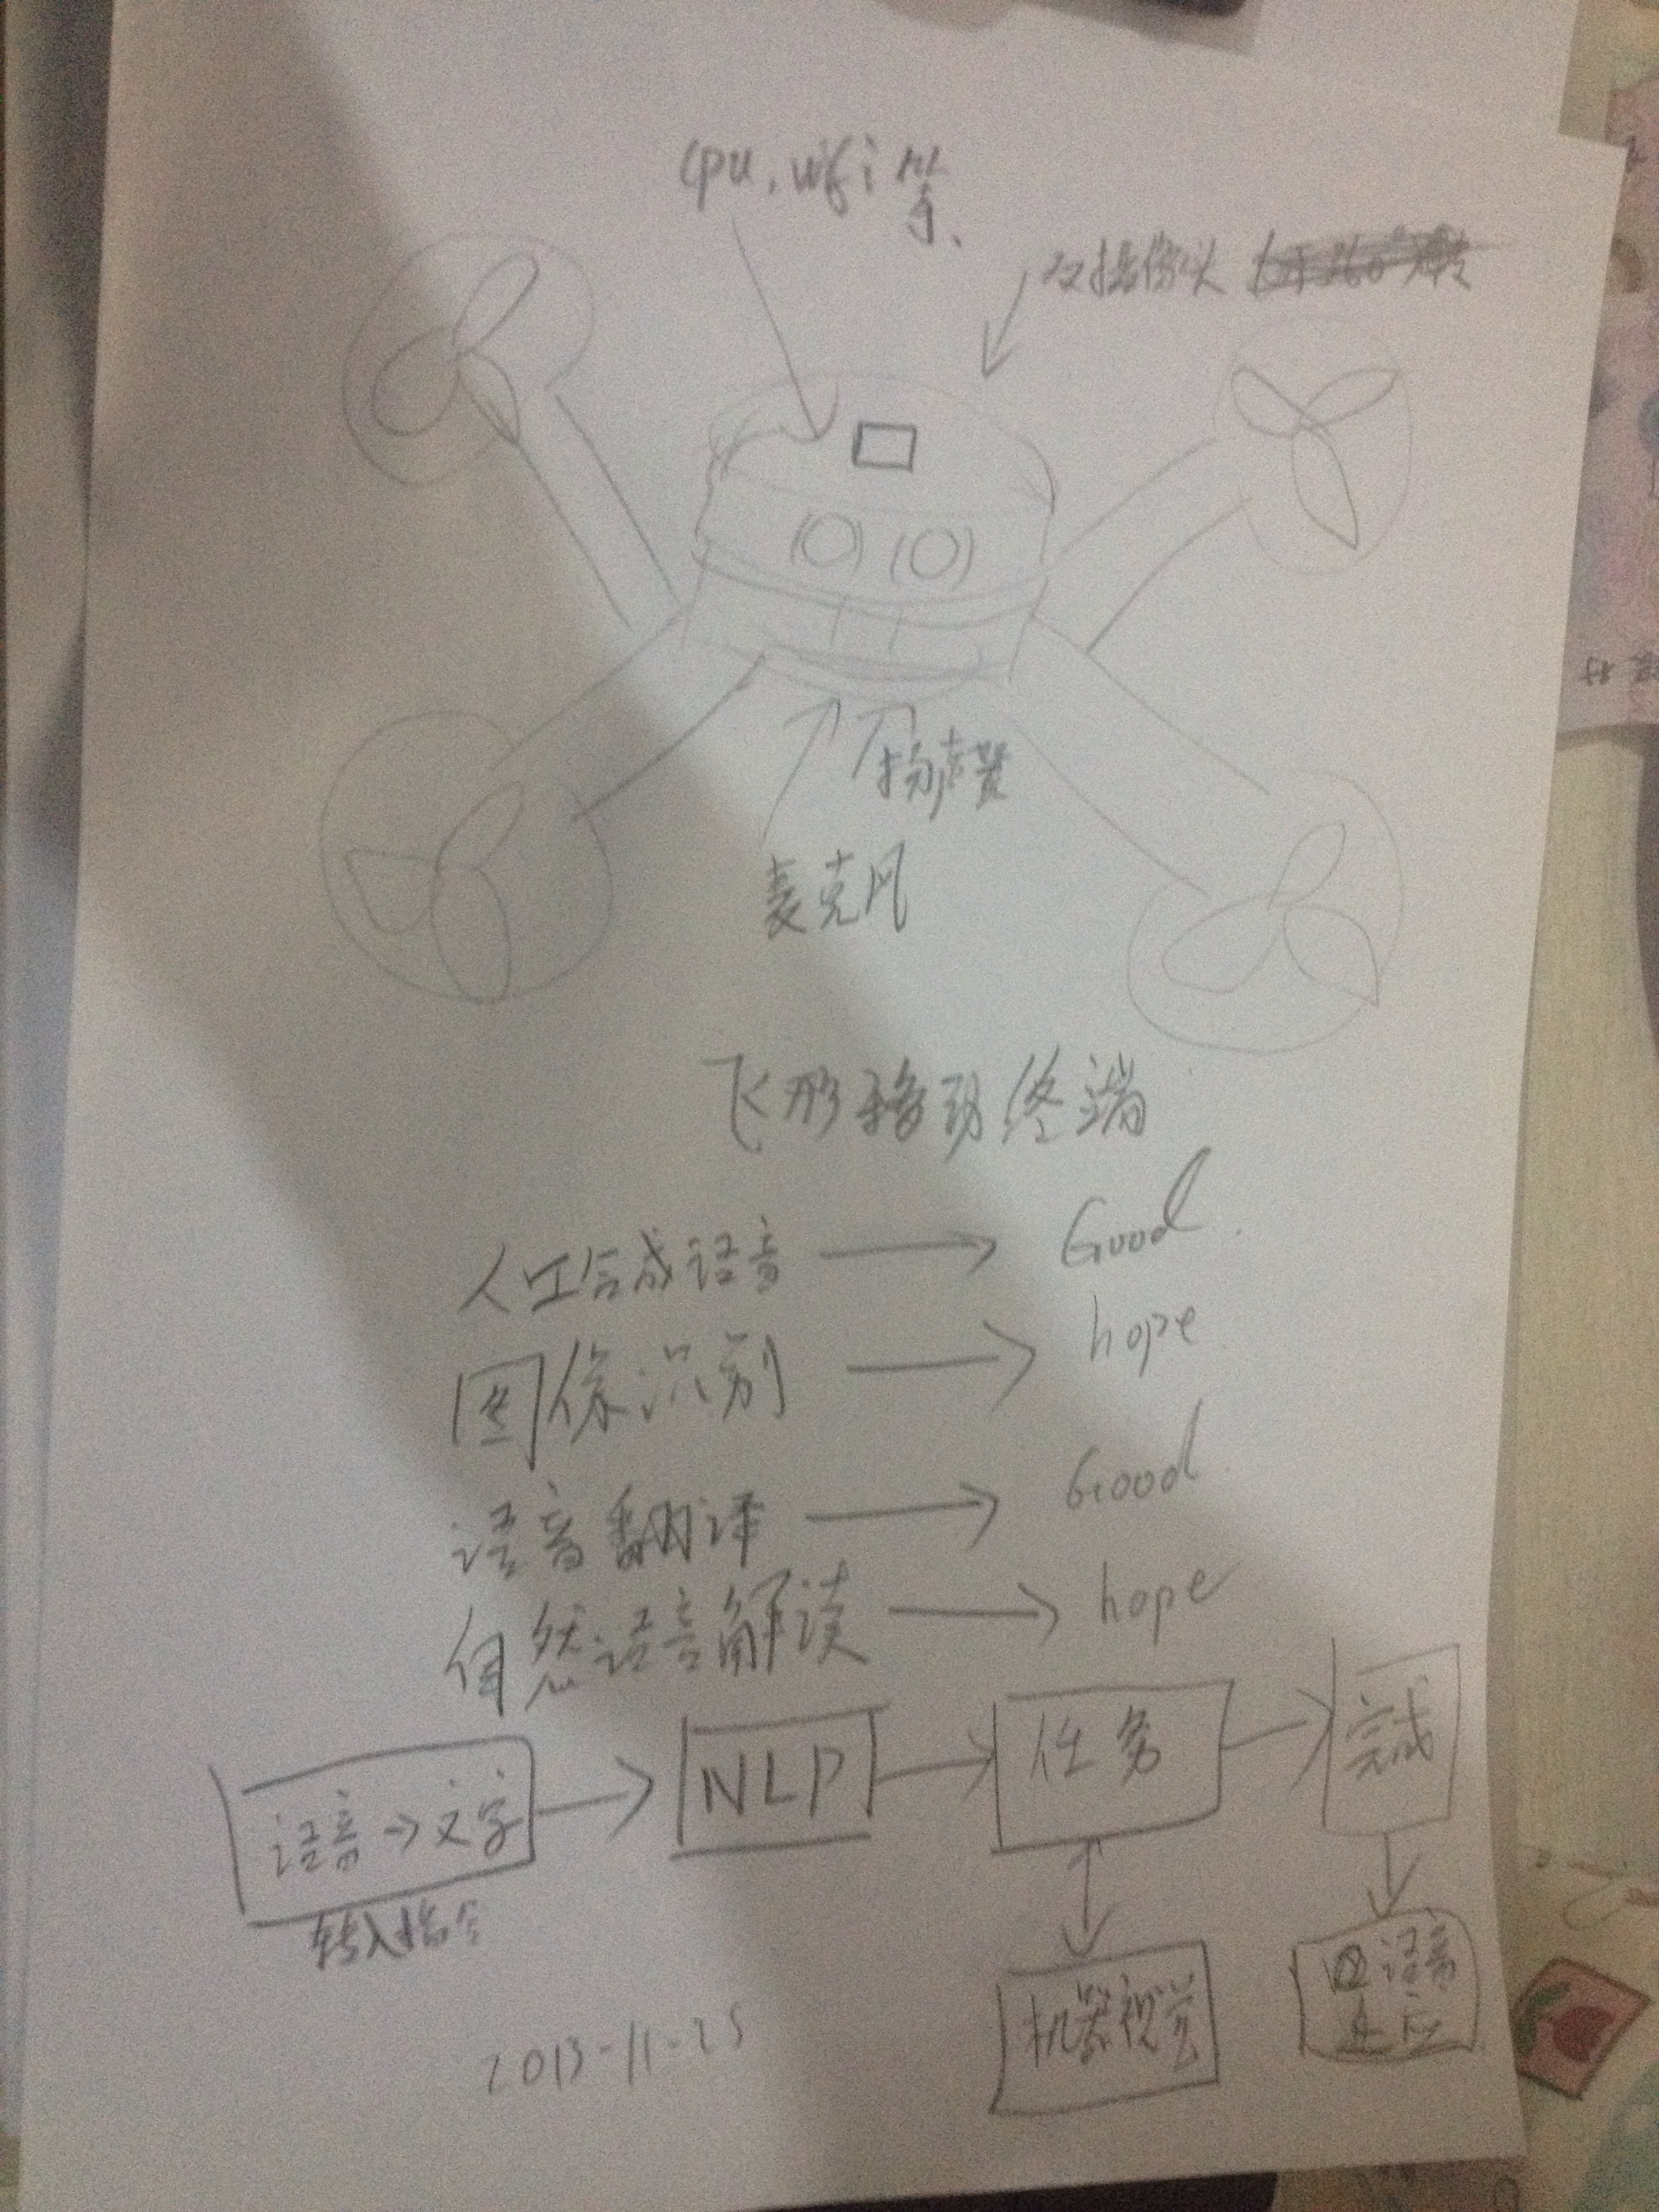 cpu, wifi 等、
双摄像头
扬声器
麦克风
飞形移动终端
人工合成语音 → Good.
图像识别 → hope.
语音翻译 → Good.
自然语言解读 → hope
语音→文字
NLP
任务
完成
转入指令
机器视觉
语音
2013-11-25